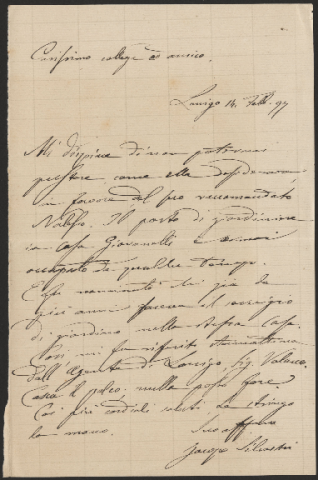 Carissimo collega ed amico.
Lonigo 14 Febb. 97
Mi dispiace di non potermi
prestare come ella desiderava
in favore del suo raccomandato
Il posto di giardiniere
in Casa Giovanelli è ormai
occupato da qualche tempo.
già da
anni faceva il servizio
di giardino nella stessa Casa.
Così mi fu riferito
dall'Agente di Lonigo, Sig.
nulla posso fare
Coi più cordiali saluti La stringo
la mano
Suo affmo
Jacopo Silvestri